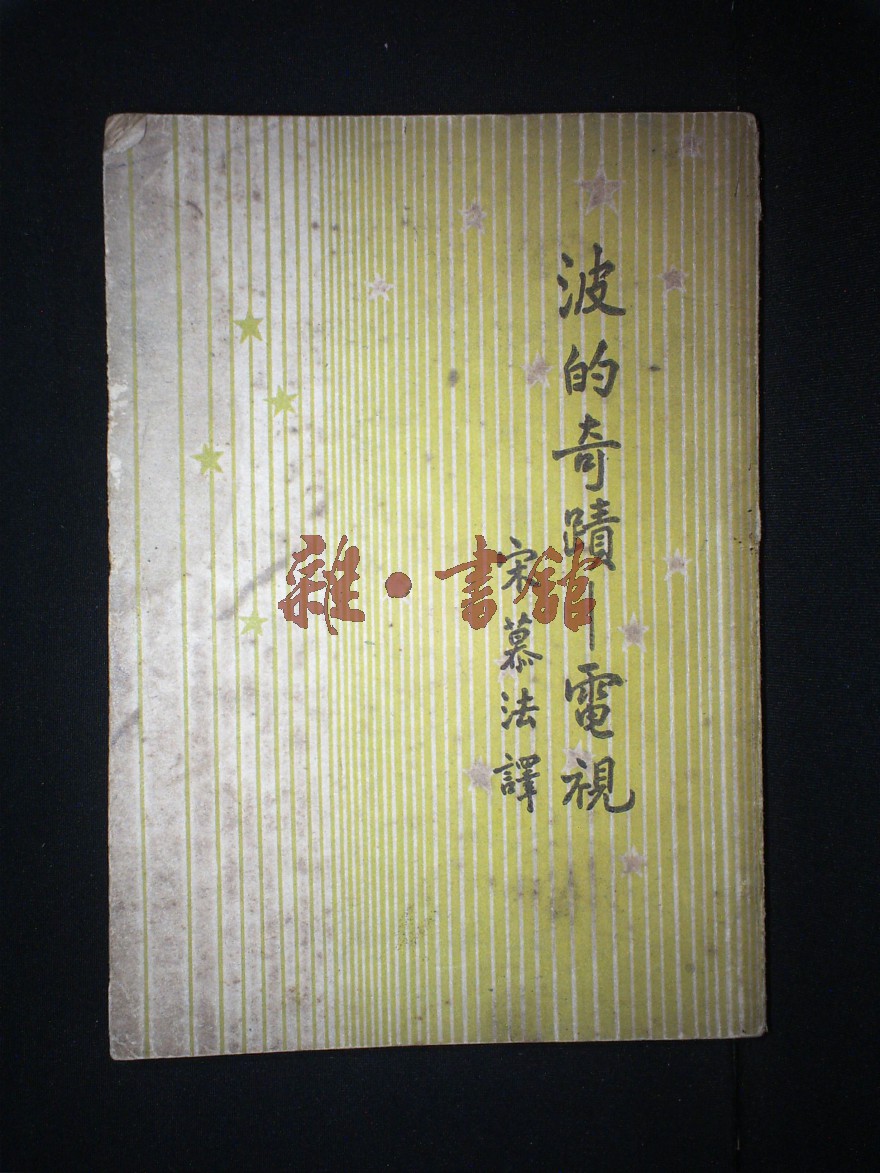 波的奇蹟—電視
宋慕法譯
雜·書館